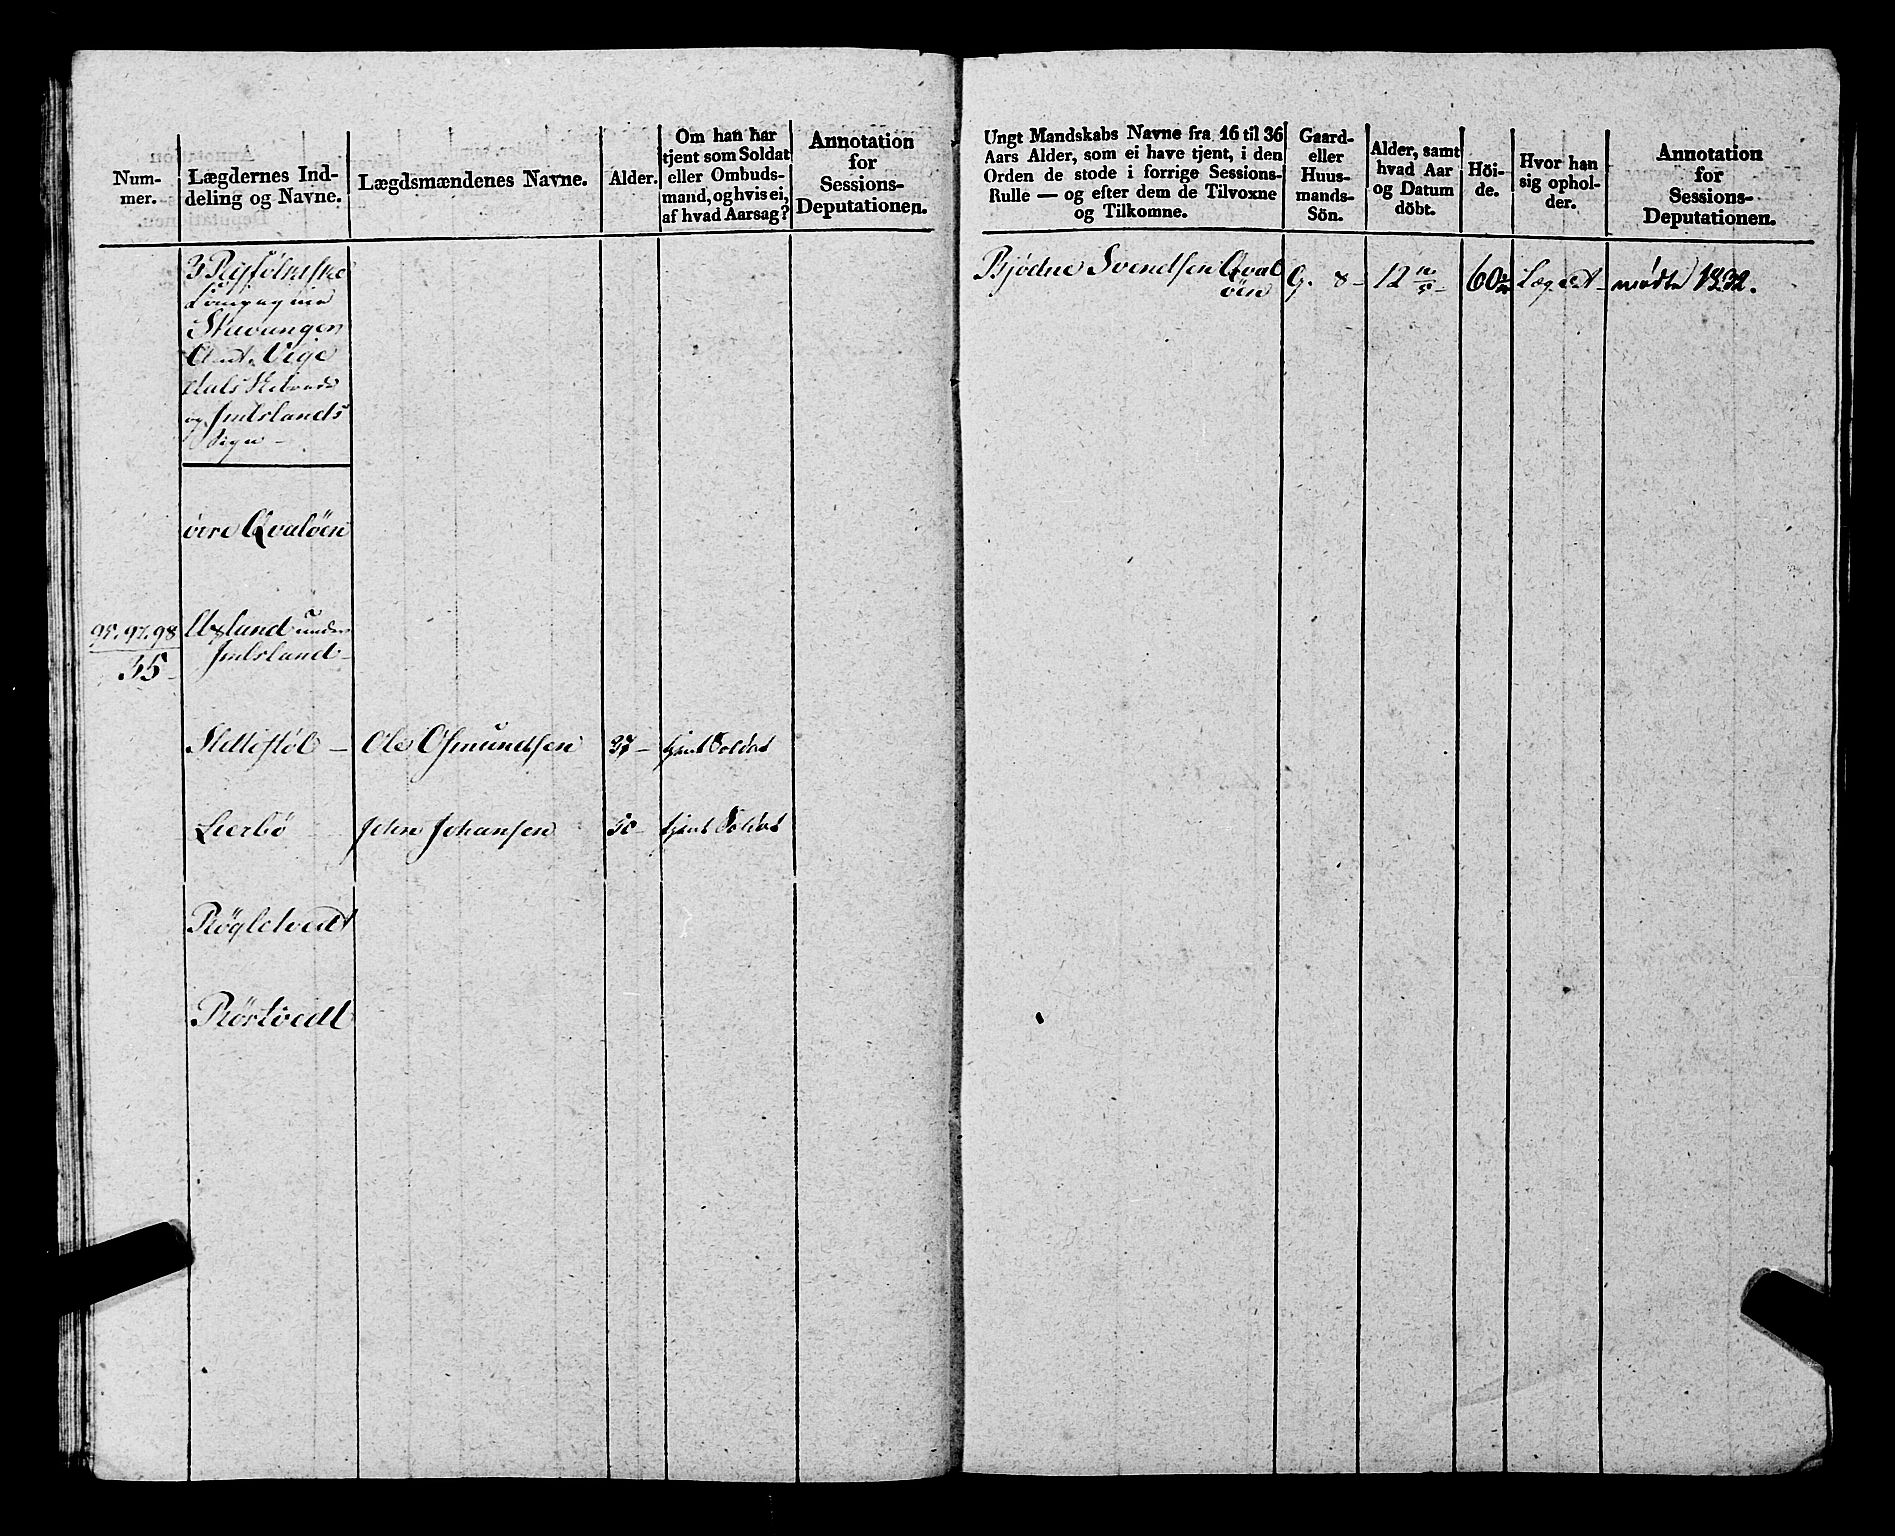 Num-
mer.
Lægdernes Ind-
deling og Navne.
Lægdsmændenes Navne.
Alder.
Om han har
tjent som Soldat
eller Ombuds-
mand, og hvis ei,
af hvad Aarsag?
Annotation
for
Sessions-
Deputationen.
3 Ryfölkeske
Compagnie
Stavanger
Amt. Vige
dals Skibrede
og Imslands
Sogn
øvre Qvaløen
95. 97. 98
35
Axland under
Imsland
Stølestøl Ole Osmundsen 37 tjent Soldat
Leerbø John Johansen tjent Soldat
Røgletvedt
Rørtvedt
Ungt Mandskabs Navne fra 16 til 36
Aars Alder, som ei have tjent, i den
Orden de stode i forrige Sessions-
Rulle — og efter dem de Tilvoxne
og Tilkomne.
Gaard-
eller
Huus-
mands-
Sön.
Alder, samt
hvad Aar
og Datum
döbt.
Höi-
de.
Hvor han
sig ophol-
der.
Annotation
for
Sessions-
Deputationen.
Bjødne Svendsen Qval G. 8 12 60 Lægdet mødte 1832.
øen